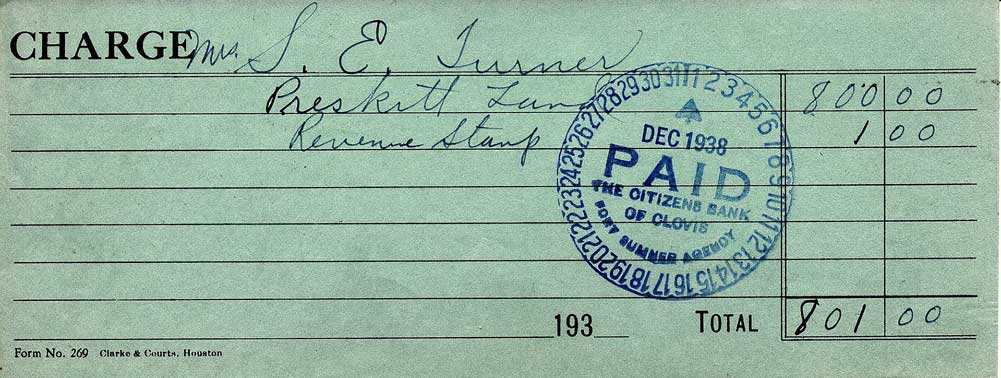 CHARGE Mrs. S. E. Turner
Preskitt Land 800 00
Revenue Stamp 1 00
28 29 30 31 1 2 3 4 5 6 7 8 9 10 11 12 13 14 15 16 17 18 19 20 21 22 23 24 25 26 27
DEC 1938
PAID
THE CITIZENS BANK
OF CLOVIS
FORT SUMNER AGENCY
193__ TOTAL 801 00
Form No. 269 Clarke & Courts, Houston